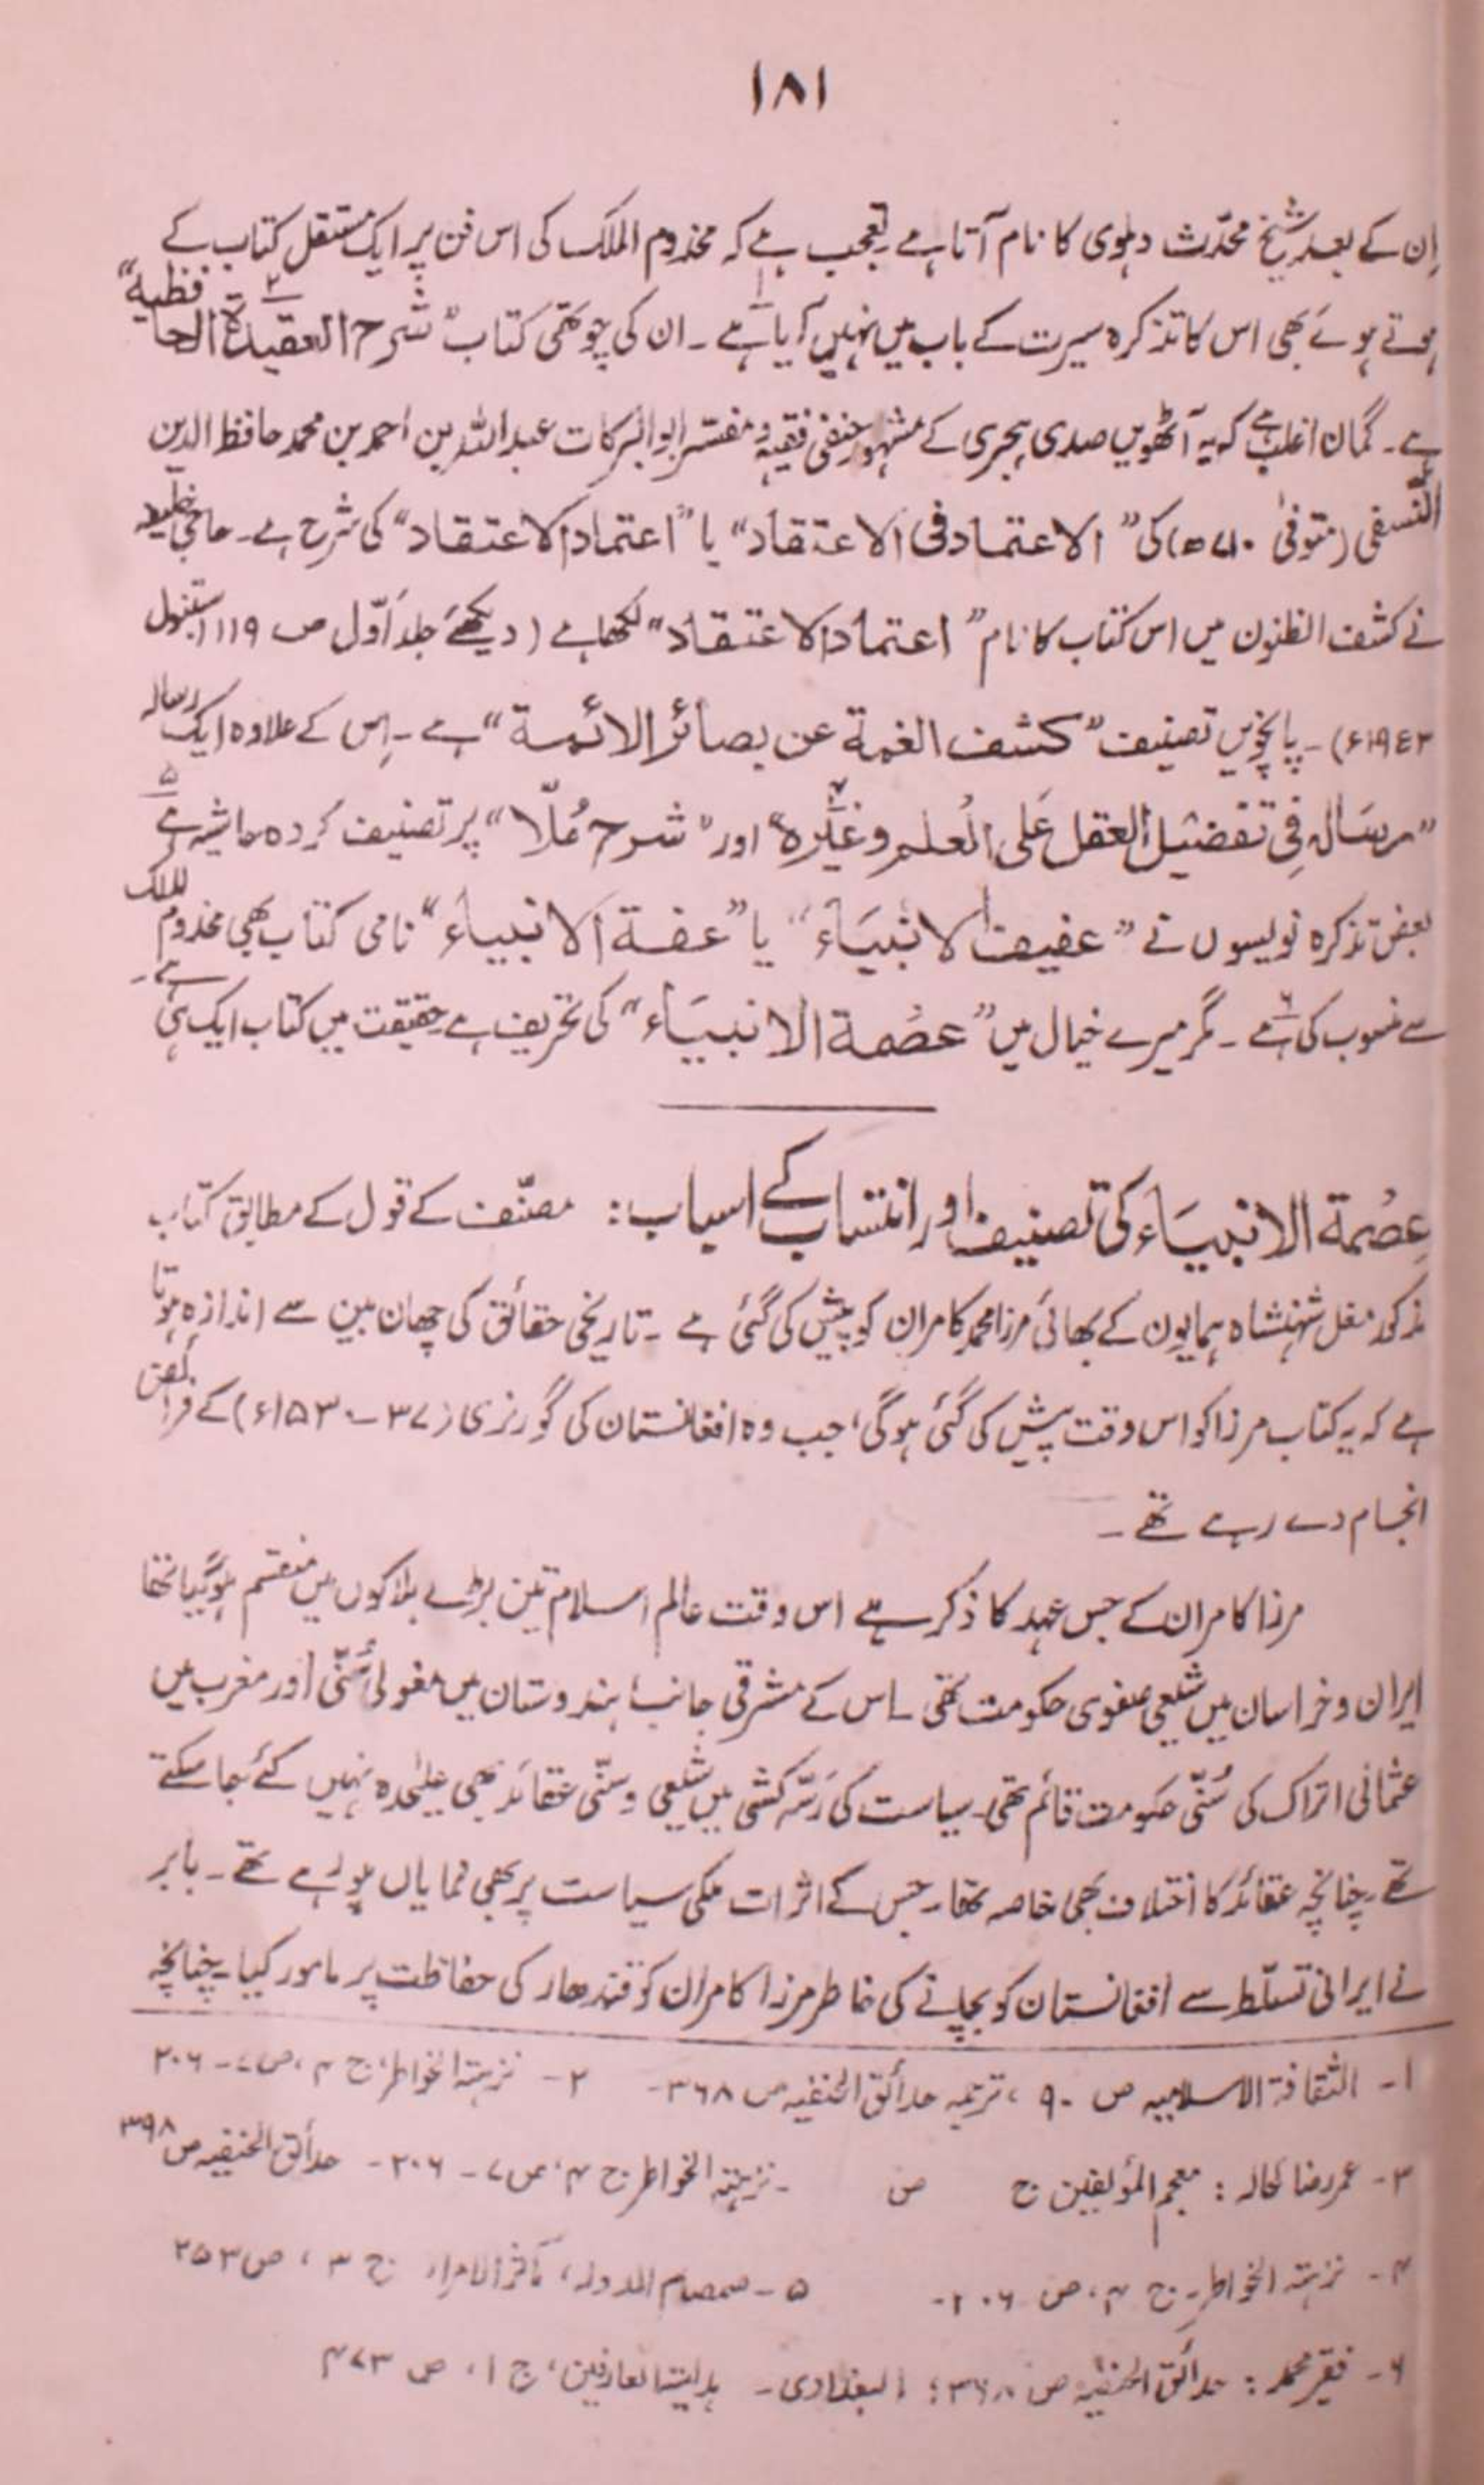 ۱۸۱
اِن کے بعد شیخ محدّث دہلوی کا نام آتا ہے۔ تعجب ہے کہ مخدوم الملک کی اس فن پر ایک مستقل کتاب کے
ہوتے ہوئے بھی اس کا تذکرہ سیرت کے باب میں نہیں آیا ہے۱۔ ان کی چوتھی کتاب "شرح العقیدۃ الحافظیہ"۲
ہے۔ گمان اغلب ہے کہ یہ آٹھویں صدی ہجری کے مشہور حنفی فقیہ و مفسّر ابو البرکات عبد اللہ بن احمد بن محمد حافظ الدین
النّسفی (متوفیٰ ۷۱۰ھ) کی "الاعتماد فی الاعتقاد" یا "اعتماد الاعتقاد" کی شرح ہے۔ حاجی خلیفہ
نے کشف الظنون میں اس کتاب کا نام "اعتماد الاعتقاد" لکھا ہے (دیکھئے جلد اوّل ص ۱۱۹ استنبول
۱۹٤۳ء)۔ پانچویں تصنیف "کشف الغمة عن بصائر الائمة" ہے۔ اِس کے علاوہ ایک رسالہ
"رسالہ فی تفضیل العقل علی العلم وغیرہ"۴ اور "شرح مُلّا" پر تصنیف کردہ حاشیہ ہے۵
بعض تذکرہ نویسوں نے "عفیفۃ الانبیَاء" یا "عفة الانبیاء" نامی کتاب بھی مخدوم الملک
سے منسوب کی ہے۶۔ مگر میرے خیال میں "عصمة الانبیَاء" کی تحریف ہے حقیقت میں کتاب ایک ہی ہے۔
عِصْمة الانبیَاء کی تصنیف اور انتساب کے اسباب: مصنّف کے قول کے مطابق کتاب
مذکور مغل شہنشاہ ہمایون کے بھائی مرزا محمد کامران کو پیش کی گئی ہے۔ تاریخی حقائق کی چھان بین سے اندازہ ہوتا
ہے کہ یہ کتاب مرزا کو اس وقت پیش کی گئی ہوگی، جب وہ افغانستان کی گورنری (۳۷-۱۵۳۰ء) کے فرائض
انجام دے رہے تھے۔
مرزا کامران کے جس عہد کا ذکر ہے اس وقت عالم اسلام تین بڑے بلاکوں میں منقسم ہوگیا تھا
ایران و خراسان میں شیعی صفوی حکومت تھی۔ اس کے مشرقی جانب ہندوستان میں مغولی سُنّی اور مغرب میں
عثمانی اتراک کی سُنّی حکومت قائم تھی۔ سیاست کی رسّہ کشی میں شیعی و سنّی عقائد بھی علیٰحدہ نہیں کئے جا سکتے
تھے۔ چنانچہ عقائد کا اختلاف بھی خاصہ تھا۔ جس کے اثرات ملکی سیاست پر بھی نمایاں ہو رہے تھے۔ بابر
نے ایرانی تسلّط سے افغانستان کو بچانے کی خاطر مرزا کامران کو قندھار کی حفاظت پر مامور کیا۔ چنانچہ
۱- الثقافة الاسلامیہ ص ۹۰، ترجمہ حدائق الحنفیہ ص ۳۶۸- ۲- نزہتہ الخواطر، ج ۴، ص ۷-۲۰۶
۳- عمر رضا کحالہ: معجم المؤلفین ج ص - نزہتہ الخواطر ج ۴، ص ۷-۲۰۶- حدائق الحنفیہ ص ۳۹۸
۴- نزہتہ الخواطر۔ ج ۴، ص ۲۰۶- ۵- صمصام الدولہ، مآثر الامراء ج ۳، ص ۲۵۳
۶- فقیر محمد: حدائق الحنفیہ ص ۳۶۸؛ البغدادی۔ ہدایتہ العارفین، ج ۱، ص ۴۷۳